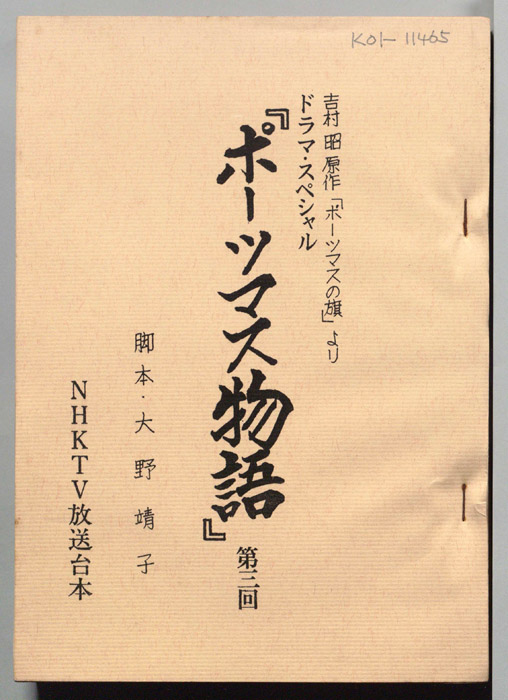 K01-11465
吉村昭原作「ポーツマスの旗」より
ドラマ・スペシャル
『ポーツマス物語』
第三回
脚本・大野靖子
NHKTV放送台本